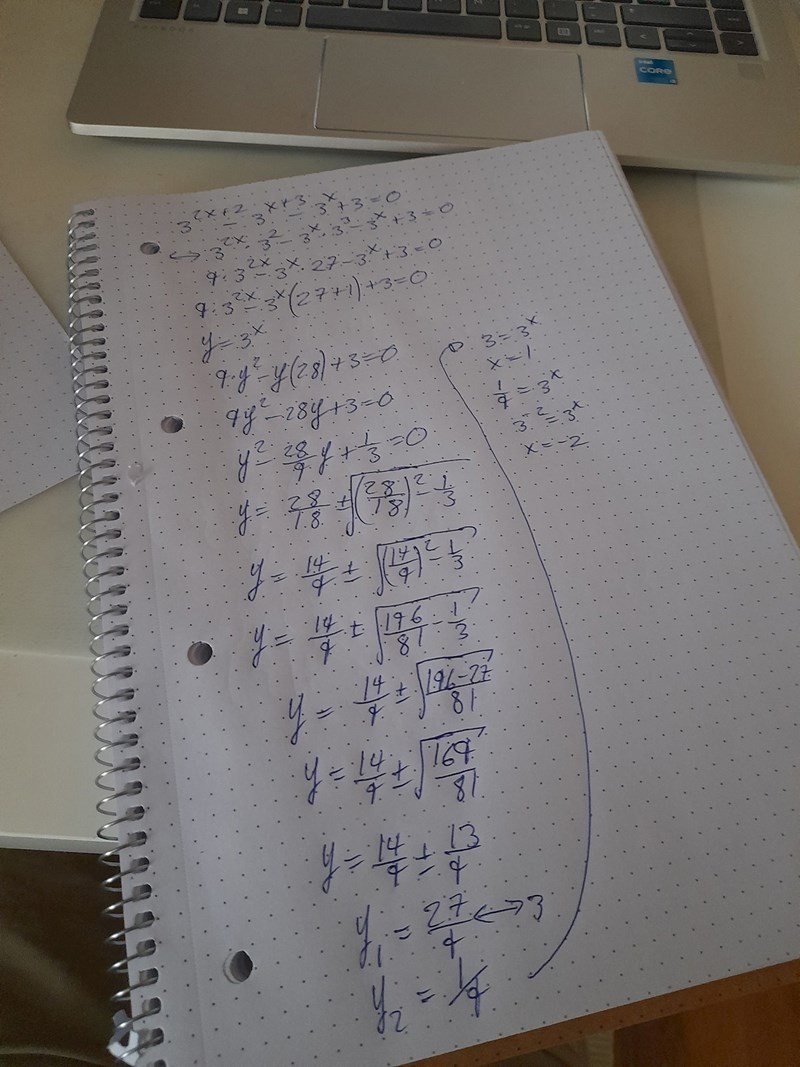 intel CORE i5
3^{2x+2} - 3^{x+3} - 3^x + 3 = 0
↔ 3^{2x} · 3^2 - 3^x · 3^3 - 3^x + 3 = 0
9 · 3^{2x} - 3^x · 27 - 3^x + 3 = 0
9 · 3^{2x} - 3^x (27+1) + 3 = 0
y = 3^x
9 · y^2 - y(28) + 3 = 0
9y^2 - 28y + 3 = 0
y^2 - \frac{28}{9}y + \frac{1}{3} = 0
y = \frac{28}{18} ± \sqrt{(\frac{28}{18})^2 - \frac{1}{3}}
y = \frac{14}{9} ± \sqrt{(\frac{14}{9})^2 - \frac{1}{3}}
y = \frac{14}{9} ± \sqrt{\frac{196}{81} - \frac{1}{3}}
y = \frac{14}{9} ± \sqrt{\frac{196-27}{81}}
y = \frac{14}{9} ± \sqrt{\frac{169}{81}}
y = \frac{14}{9} ± \frac{13}{9}
y_1 = \frac{27}{9} ↔ 3
y_2 = \frac{1}{9}
3 = 3^x
x = 1
\frac{1}{9} = 3^x
3^{-2} = 3^x
x = -2